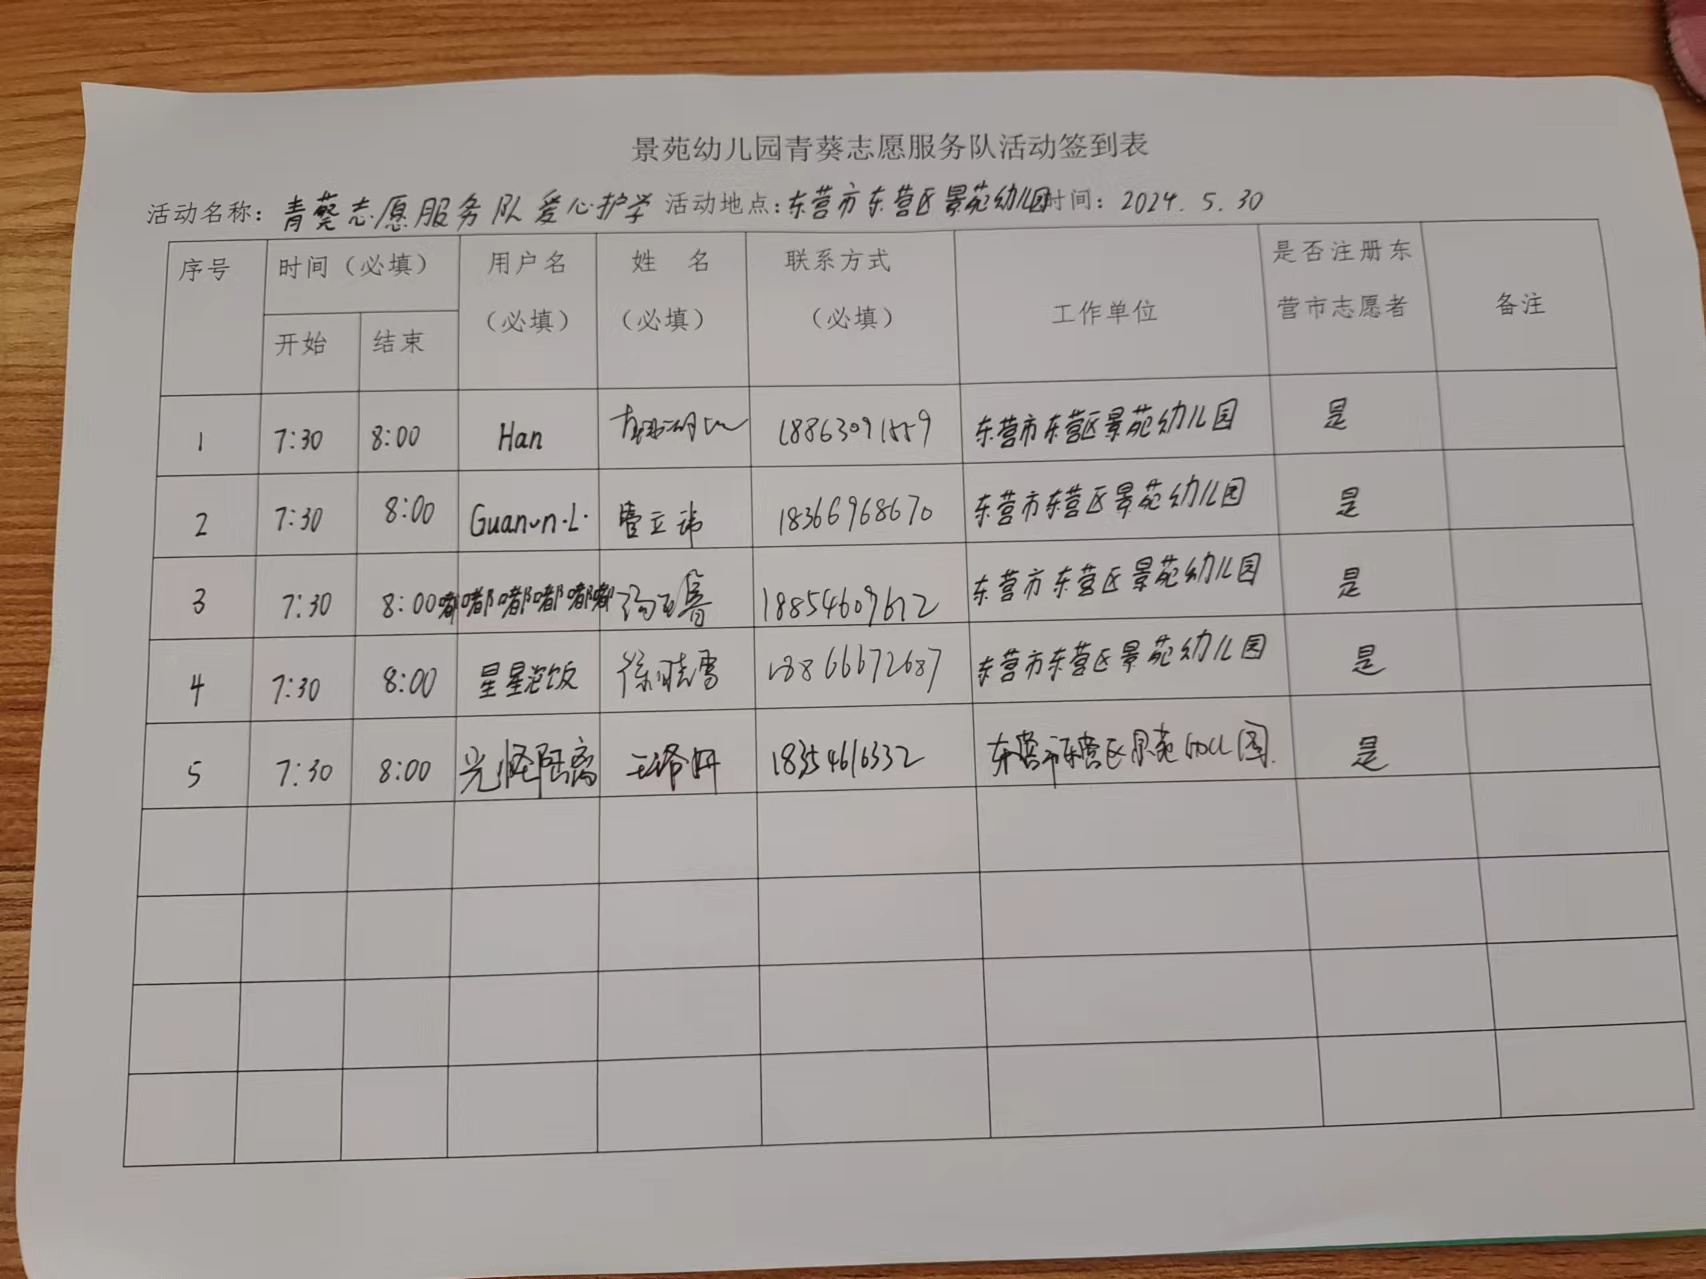 景苑幼儿园青葵志愿服务队活动签到表
活动名称：青葵志愿服务队爱心护学 活动地点：东营市东营区景苑幼儿园 时间：2024.5.30
序号 时间（必填） 用户名（必填） 姓 名（必填） 联系方式（必填） 工作单位 是否注册东营市志愿者 备注
开始 结束
1 7:30 8:00 Han 18863091559 东营市东营区景苑幼儿园 是
2 7:30 8:00 管立祎 18366968670 东营市东营区景苑幼儿园 是
3 7:30 8:00 嘟嘟嘟嘟嘟嘟 18854609672 东营市东营区景苑幼儿园 是
4 7:30 8:00 星星泡饭 徐晓雪 18866672687 东营市东营区景苑幼儿园 是
5 7:30 8:00 光怪陆离 18354616332 东营市东营区景苑幼儿园 是